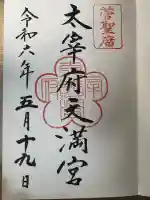 菅聖庿
太宰府天満宮
令和六年五月十九日